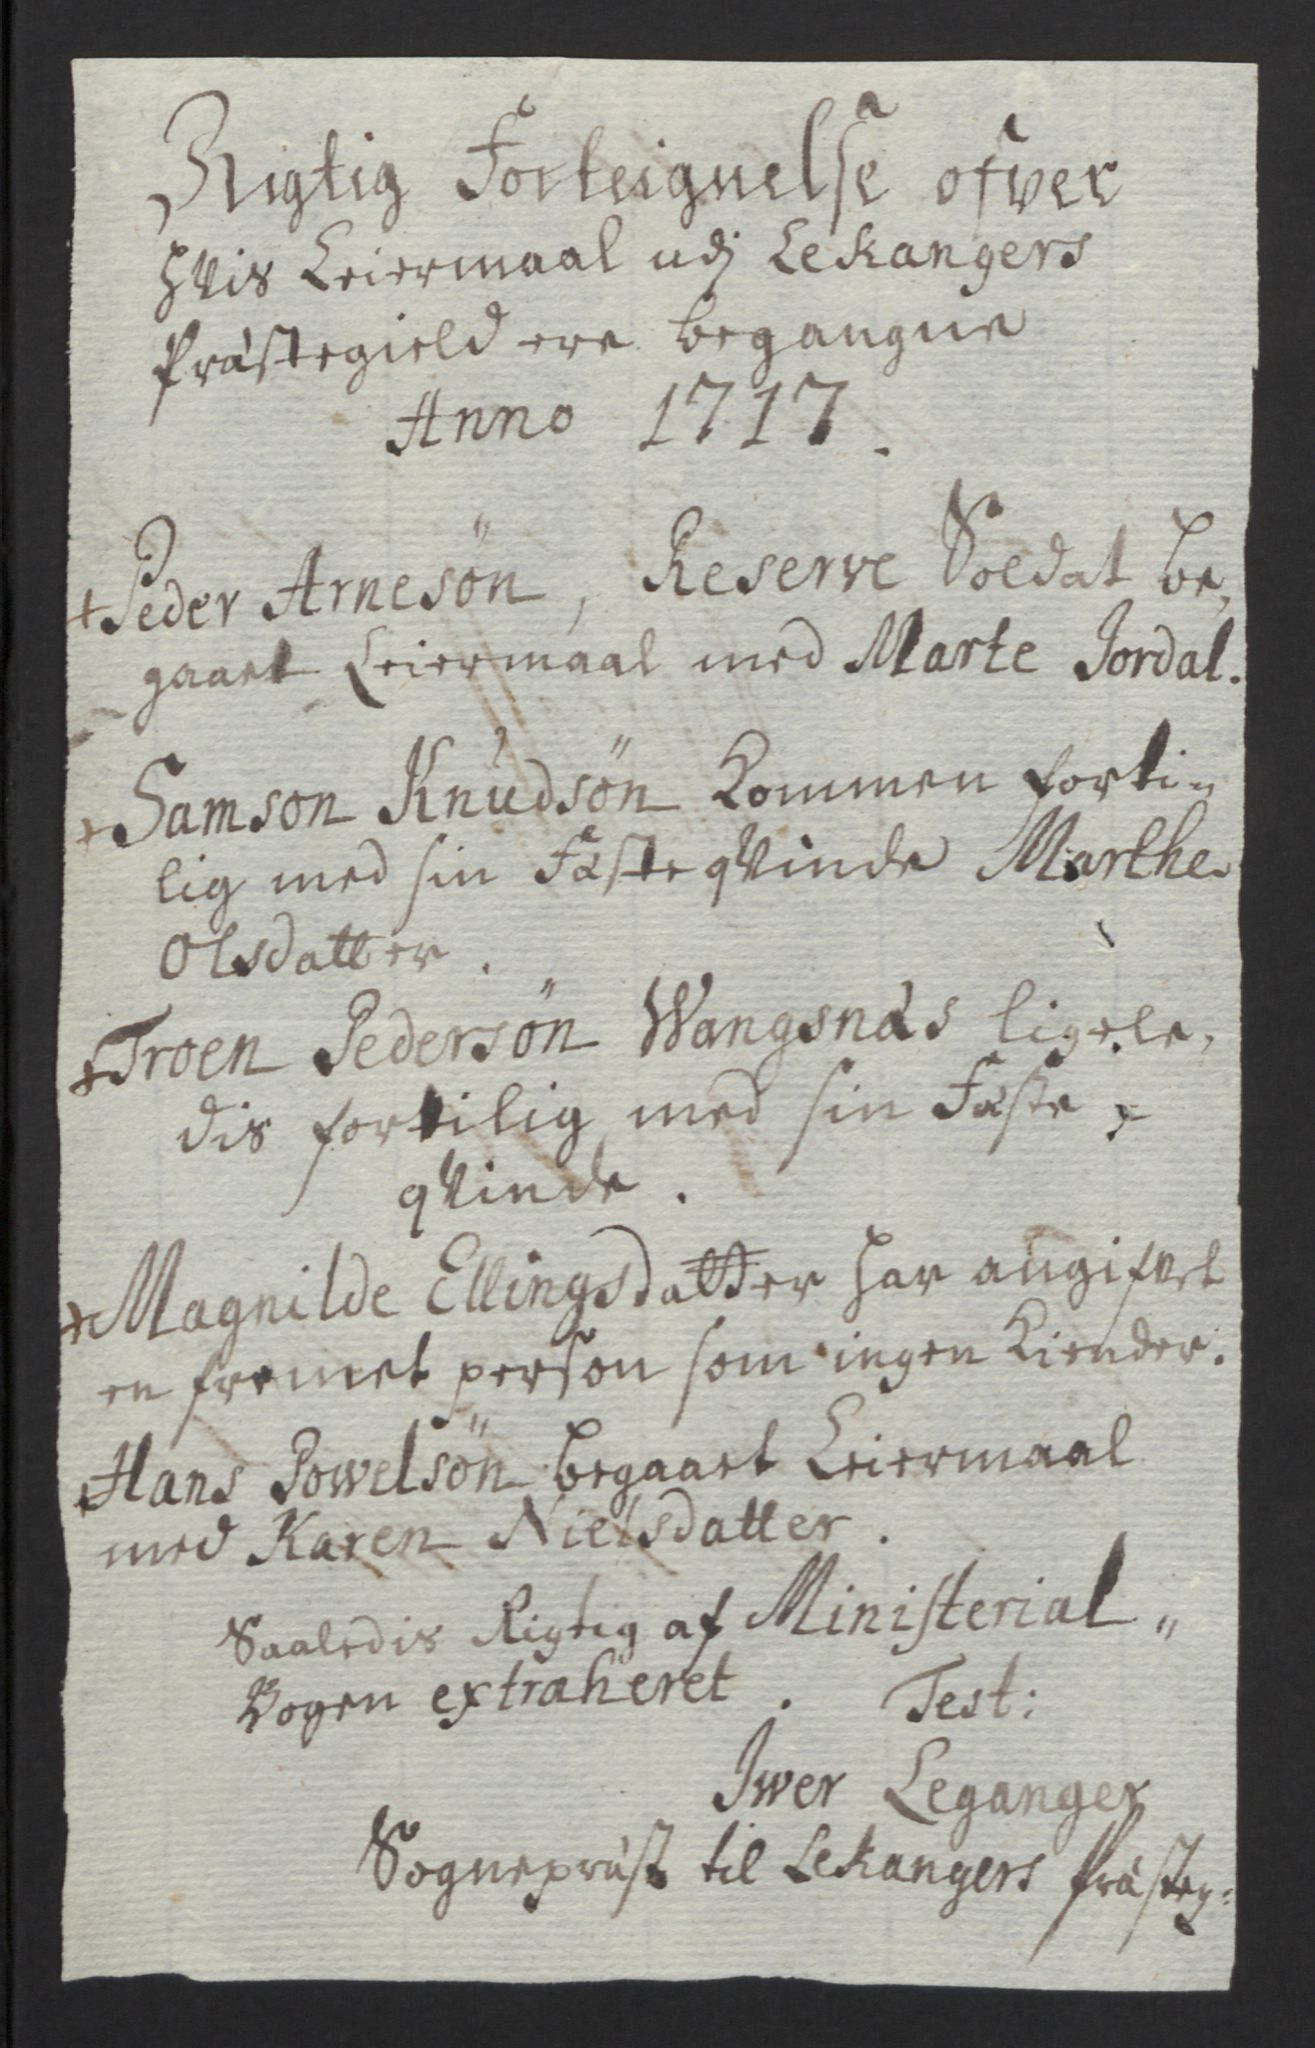 Rigtig Forteignelse ofver
hvis Leiermaal udj Lekangers
Præstegield ere begangne
Anno 1717.
+ Peder Arnesön, Reserve Soldat be,
gaaet Leiermaal med Marte Jordal.
+ Samson Knudsön kommen forti„
lig med sin Fæste qvinde Marthe
Olsdatter.
+ Troen Pedersön Wangsnæs ligele,
dis fortilig med sin Fæste =
qvinde.
+ Magnilde Ellingsdatter har angifvet
en fremet person som ingen kiender.
+ Hans Powelsön begaaet Leiermaal
med Karen Nielsdatter.
Saaledis Rigtig af Ministerial„
Bogen extraheret. Test:
Iwer Leganger
Sognepræst til Lekangers Præsteg: